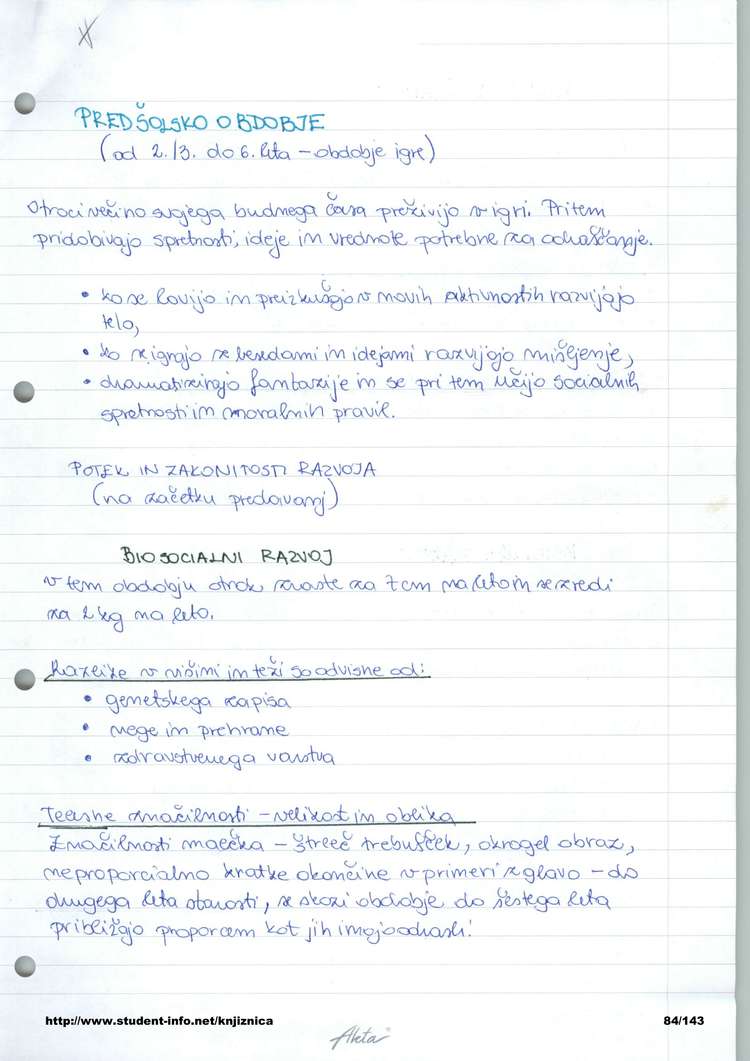 PREDŠOLSKO OBDOBJE
(od 2./3. do 6. leta - obdobje igre)
Otroci večino svojega budnega časa preživijo v igri. Pri tem
pridobivajo spretnosti, ideje in vrednote potrebne za odraščanje.
• ko se lovijo in preizkušajo v novih aktivnostih razvijajo
telo,
• ko se igrajo z besedami in idejami razvijajo mišljenje,
• dramatizirajo fantazije in se pri tem učijo socialnih
spretnosti in moralnih pravil.
POTEK IN ZAKONITOSTI RAZVOJA
(na začetku predavanj)
BIOSOCIALNI RAZVOJ
v tem obdobju otrok zraste za 7 cm na leto in se zredi
za 2 kg na leto.
Razlike v višini in teži so odvisne od:
• genetskega zapisa
• nege in prehrane
• zdravstvenega varstva
Telesne značilnosti - velikost in oblika
Značilnosti malčka - štrleč trebušček, okrogel obraz,
neproporcialno kratke okončine v primeri z glavo - do
drugega leta starosti, se skozi obdobje do šestega leta
približajo proporcem kot jih imajo odrasli!
http://www.student-info.net/knjiznica
84/143
Akta